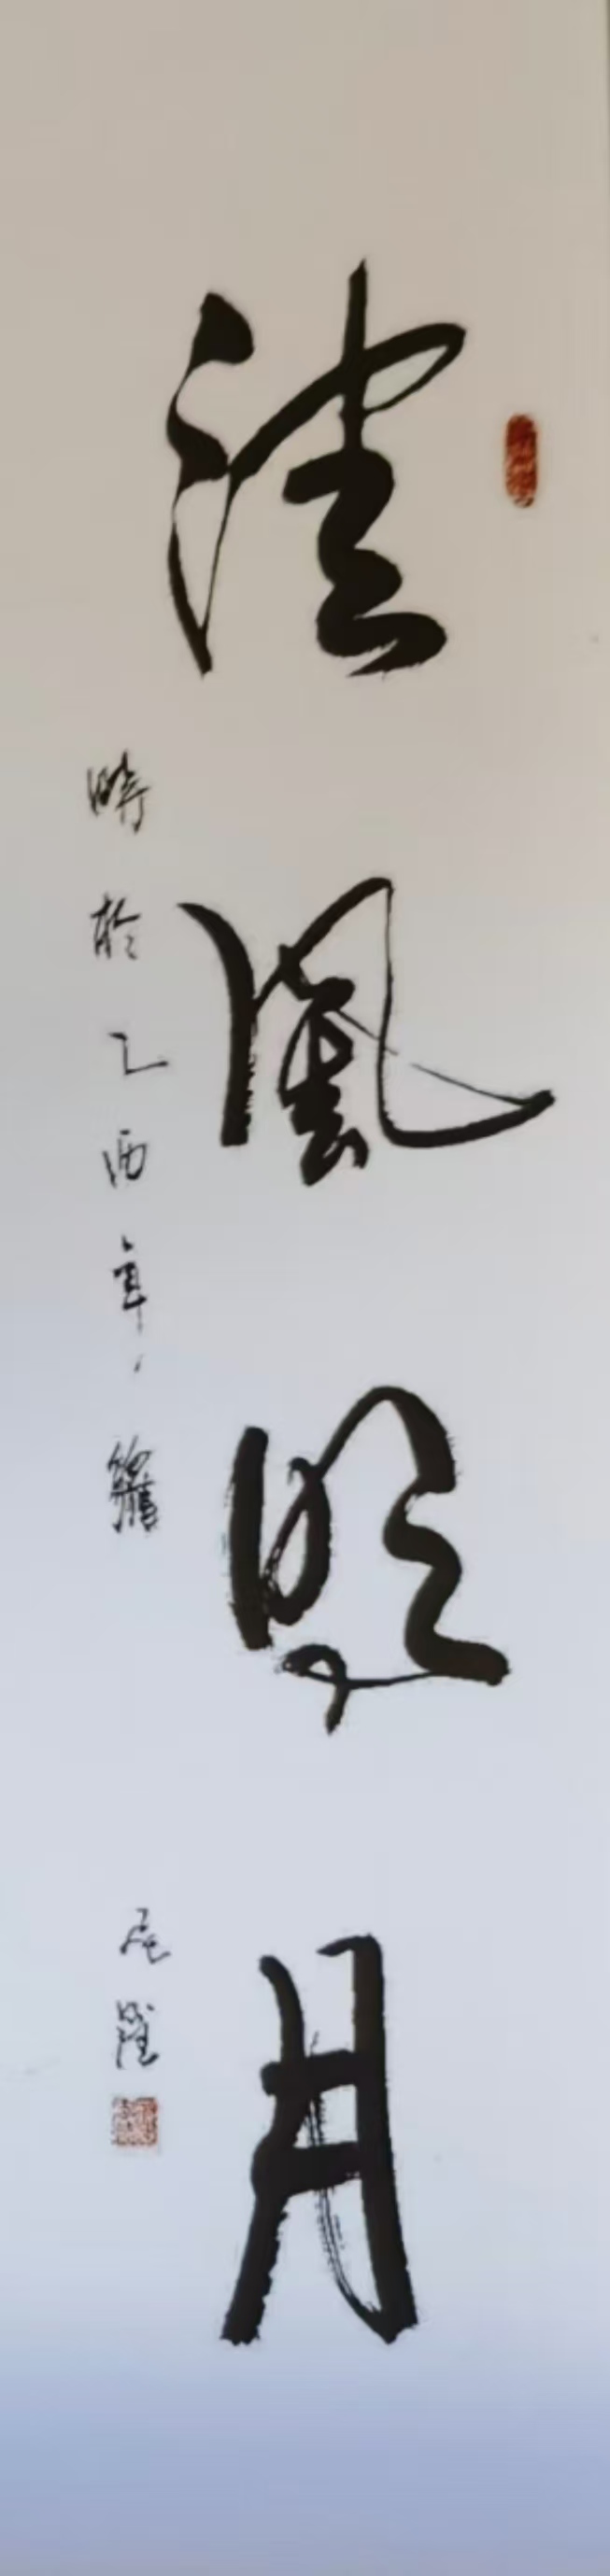 清風明月
時於乙酉年